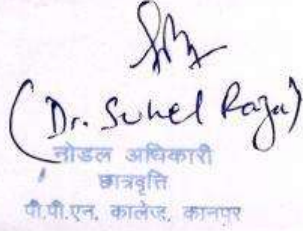 (Dr. Suhel Raja)
नोडल अधिकारी
छात्रवृत्ति
पी.पी.एन. कालेज, कानपुर